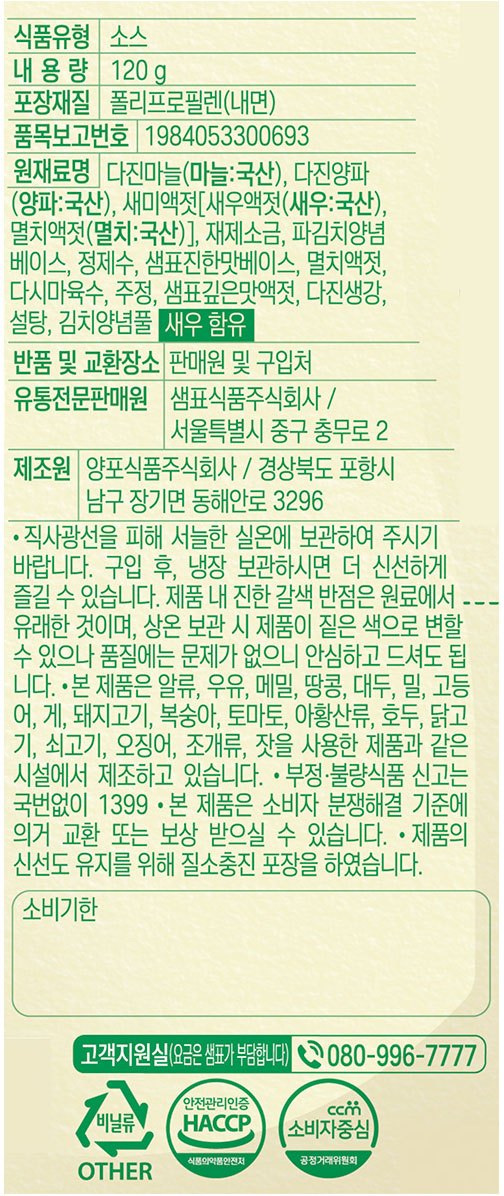 식품유형 소스
내 용 량 120 g
포장재질 폴리프로필렌(내면)
품목보고번호 1984053300693
원재료명 다진마늘(마늘:국산), 다진양파
(양파:국산), 새미액젓[새우액젓(새우:국산),
멸치액젓(멸치:국산)], 재제소금, 파김치양념
베이스, 정제수, 샘표진한맛베이스, 멸치액젓,
다시마육수, 주정, 샘표깊은맛액젓, 다진생강,
설탕, 김치양념풀 새우 함유
반품 및 교환장소 판매원 및 구입처
유통전문판매원 샘표식품주식회사 /
서울특별시 중구 충무로 2
제조원 양포식품주식회사 / 경상북도 포항시
남구 장기면 동해안로 3296
• 직사광선을 피해 서늘한 실온에 보관하여 주시기
바랍니다. 구입 후, 냉장 보관하시면 더 신선하게
즐길 수 있습니다. 제품 내 진한 갈색 반점은 원료에서
유래한 것이며, 상온 보관 시 제품이 짙은 색으로 변할
수 있으나 품질에는 문제가 없으니 안심하고 드셔도 됩
니다. • 본 제품은 알류, 우유, 메밀, 땅콩, 대두, 밀, 고등
어, 게, 돼지고기, 복숭아, 토마토, 아황산류, 호두, 닭고
기, 쇠고기, 오징어, 조개류, 잣을 사용한 제품과 같은
시설에서 제조하고 있습니다. • 부정·불량식품 신고는
국번없이 1399 • 본 제품은 소비자 분쟁해결 기준에
의거 교환 또는 보상 받으실 수 있습니다. • 제품의
신선도 유지를 위해 질소충진 포장을 하였습니다.
소비기한
고객지원실(요금은 샘표가 부담합니다) 080-996-7777
비닐류
OTHER
안전관리인증
HACCP
식품의약품안전처
ccm
소비자중심
공정거래위원회